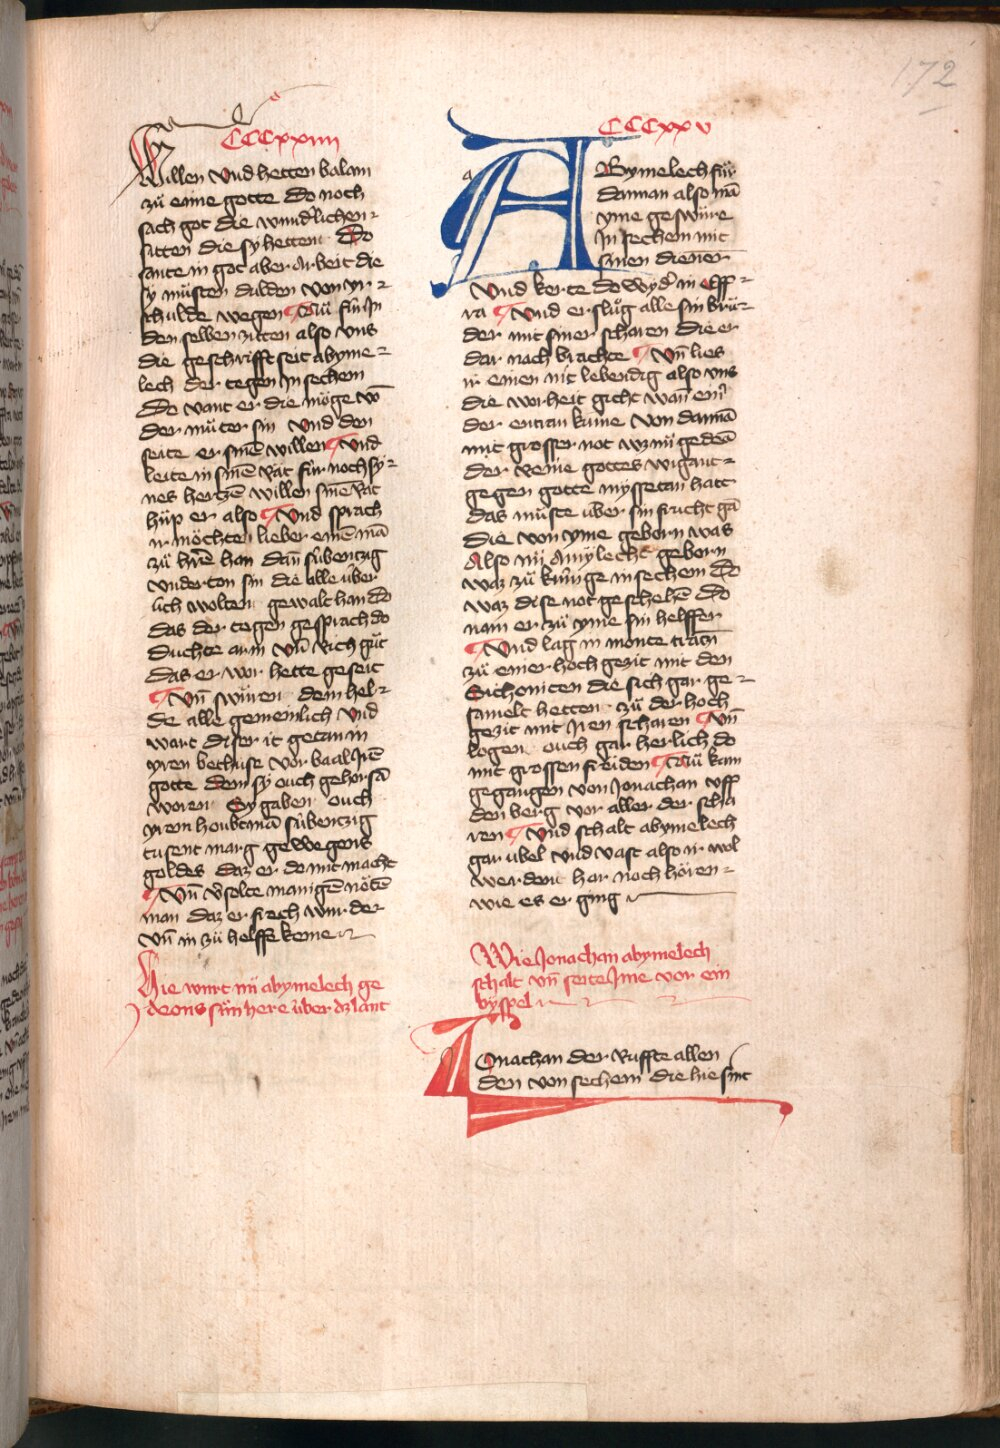 172
CCCxxiiii
Willen Vnd hetten balam
zů eime gotte do noch
sach got die wund'lichen
sitten die sy hetten Do
sante in got aber arbeit die
sy můsten dulden von yr
schulde wegen Nů fůr In
den selben zitten also vns
die geschrifft seit abyme
lech der tegen in sechem
Do vant er die möge vō
der můter sin Vnd den
seite er sinē willen Vnd
leite in sinē rat fůr noch sy
nes hertzē willen sinē rat
hůp er also Vnd sprach
ir möchte lieber einē mā
zů h'rē han dañ sůbentzig
vnderton sin die alle über
üch wolten gewalt han do
das der tegen gesprach do
duchte arm vñ rich gůt
das er wor hette geseit
Vñ swůren dem hel
de alle gemeinlich Vnd
wart diser it getan in
yren bethuse vor baal Irē
gotte dem sy ouch gehorsā
woren Sy gaben ouch
yren houbtmā sůbentzig
tusent marg gewegens
goldes daz er do mit macht
Vñ v'solte manigē nötē
man daz er frech wurde
vñ in zů helffe keme
Hie wurt nů abymelech ge
deons sůn here über dz lant
CCCxxv
a
ABymelech fůr
dannan also mā
yme geswůre
In sechem mit
sinen diener
Vnd kerte do wyd' in eff
ra Vnd er slůg alle sin brů
der mit siner scharen die er
dar nach brachte Vñ lies
ir einen nit lebendig also vns
die worheit gicht wañ ein'
der entran kume von dannā
mit grosser not wym gedeō
der reine gottes wigant
gegen gotte myssetan hatt
das můste über sin frucht gā
die von yme geborn was
Also nů Amylech geborn
waz zů kůnige in sechem Do
waz dise not geschehē Do
nam er zů yme sin helffer
Vnd lag in monte
zů einer hochgezit mit den
Sichemiten die sich gar ge
samelt hetten zů der hoch
gezit mit Iren scharen Vñ
logen ouch gar herlich do
mit grossen freiden Nů kam
gegangen von Jonathan vff
den berg vor aller der scha
ren Vnd schalt abymelech
gar übel vnd vast also ir wol
werdent har noch hören
wie es er ging
Wie Jonathan abymelech
schalt vñ seite Ime vor ein
byspel
Jonathan der ruffte allen
den von sechem die hie sint